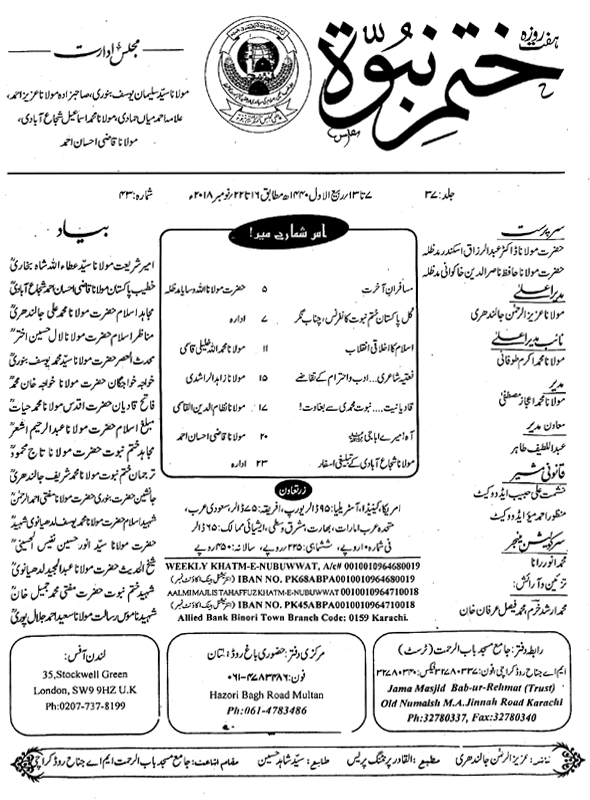 ہفت روزہ
ختم نبوۃ
مجلس ادارت
مولانا سید سلیمان یوسف بنوری، صاحبزادہ مولانا عزیز احمد،
علامہ احمد میاں حمادی، مولانا محمد اسماعیل شجاع آبادی،
مولانا قاضی احسان احمد
جلد: ۳۷
۷ تا ۱۳؍ ربیع الاول ۱۴۴۰ھ مطابق ۱۶ تا ۲۲؍ نومبر ۲۰۱۸ء
شمارہ: ۴۳
سرپرست
حضرت مولانا ڈاکٹر عبدالرزاق اسکندر مدظلہ
حضرت مولانا حافظ ناصر الدین خاکوانی مدظلہ
مدیر اعلیٰ
مولانا عزیز الرحمٰن جالندھری
نائب مدیر اعلیٰ
مولانا محمد اکرم طوفانی
مدیر
مولانا محمد اعجاز مصطفیٰ
معاون مدیر
عبداللطیف طاہر
قانونی مشیر
حشمت علی حبیب ایڈووکیٹ
منظور احمد میؤ ایڈووکیٹ
سرکولیشن منیجر
محمد انور رانا
تزئین و آرائش:
محمد ارشد خرم، محمد فیصل عرفان خان
اس شمارے میں!
مسافرانِ آخرت ۵ حضرت مولانا اللہ وسایا مدظلہ
کل پاکستان ختم نبوت کانفرنس، چناب نگر ۷ ادارہ
اسلام کا اخلاقی انقلاب ۱۱ مولانا محمد اللہ خلیلی قاسمی
نعتیہ شاعری... ادب و احترام کے تقاضے ۱۵ مولانا زاہد الراشدی
قادیانیت.... نبوت محمدی سے بغاوت! ۱۷ مولانا نظام الدین القاسمی
آہ! میرے اباجی ۲۰ مولانا قاضی احسان احمد
مولانا شجاع آبادی کے تبلیغی اسفار ۲۳ ادارہ
زرتعاون
امریکا، کینیڈا، آسٹریلیا: ۹۵ ڈالر، یورپ، افریقہ: ۷۵ ڈالر، سعودی عرب،
متحدہ عرب امارات، بھارت، مشرق وسطی، ایشیائی ممالک: ۶۵ ڈالر
فی شمارہ ۱۰ روپے، ششماہی: ۲۲۵ روپے، سالانہ: ۳۵۰ روپے
WEEKLY KHATM-E-NUBUWWAT, A/c# 0010010964680019
IBAN NO. PK68ABPA0010010964680019 (انٹرنیشنل بینک اکاؤنٹ نمبر)
AALMIMAJLIS TAHAFFUZ KHATM-E-NUBUWWAT 0010010964710018
IBAN NO. PK45ABPA0010010964710018 (انٹرنیشنل بینک اکاؤنٹ نمبر)
Allied Bank Binori Town Branch Code: 0159 Karachi.
بیاد
امیر شریعت مولانا سید عطاء اللہ شاہ بخاریؒ
خطیب پاکستان مولانا قاضی احسان احمد شجاع آبادیؒ
مجاہد اسلام حضرت مولانا محمد علی جالندھریؒ
مناظر اسلام حضرت مولانا لال حسین اخترؒ
محدث العصر حضرت مولانا سید محمد یوسف بنوریؒ
خواجہ خواجگان حضرت مولانا خواجہ خان محمدؒ
فاتح قادیان حضرت اقدس مولانا محمد حیاتؒ
مبلغ اسلام حضرت مولانا عبدالرحیم اشعرؒ
مجاہد ختم نبوت حضرت مولانا تاج محمودؒ
ترجمان ختم نبوت حضرت مولانا محمد شریف جالندھریؒ
جانشین حضرت بنوری حضرت مولانا مفتی احمد الرحمٰنؒ
شہید اسلام حضرت مولانا محمد یوسف لدھیانوی شہیدؒ
حضرت مولانا سید انور حسین نفیس الحسینیؒ
شیخ الحدیث حضرت مولانا عبدالمجید لدھیانویؒ
شہید ختم نبوت حضرت مفتی محمد جمیل خانؒ
شہید ناموس رسالت مولانا سعید احمد جلال پوریؒ
رابطہ دفتر: جامع مسجد باب الرحمت (ٹرسٹ)
ایم اے جناح روڈ کراچی، فون: ۳۲۷۸۰۳۳۷، فیکس: ۳۲۷۸۰۳۴۰
Jama Masjid Bab-ur-Rehmat (Trust)
Old Numaish M.A.Jinnah Road Karachi
Ph:32780337, Fax:32780340
مرکزی دفتر: حضوری باغ روڈ، ملتان
فون: ۰۶۱-۴۷۸۳۴۸۶
Hazori Bagh Road Multan
Ph:061-4783486
لندن آفس:
35,Stockwell Green
London, SW9 9HZ U.K
Ph:0207-737-8199
ناشر: عزیز الرحمٰن جالندھری مطبع: القادر پرنٹنگ پریس طابع: سید شاہد حسین مقام اشاعت: جامع مسجد باب الرحمت ایم اے جناح روڈ کراچی